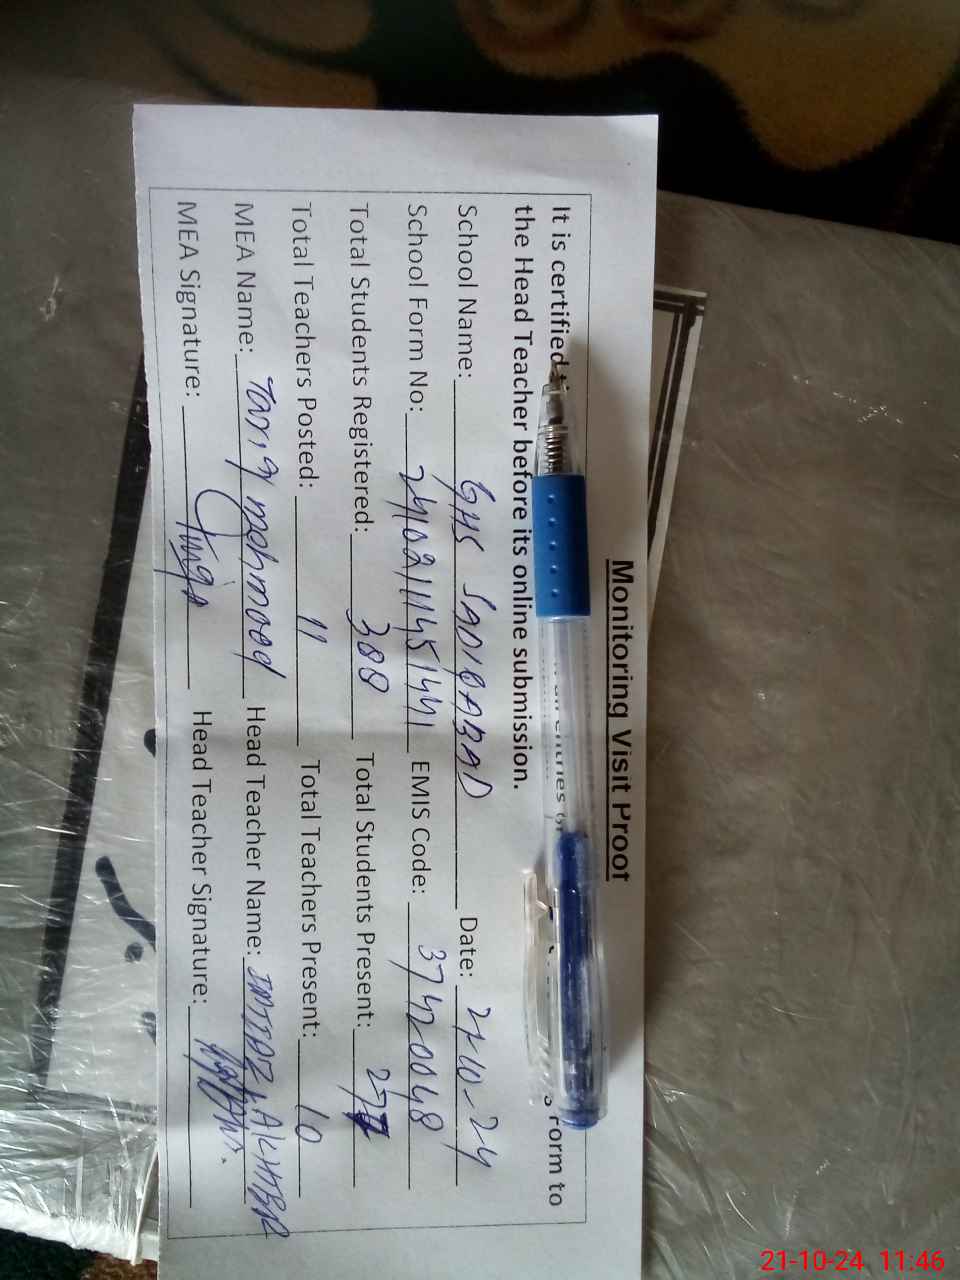 Monitoring Visit Proof
It is certified entries of form to
the Head Teacher before its online submission.
School Name: GHS SADIQABAD Date:
School Form No: EMIS Code: 37420048
Total Students Registered: 388 Total Students Present:
Total Teachers Posted: 11 Total Teachers Present: 10
MEA Name: Tariq mehmood Head Teacher Name: IMTIAZ AKHTER
MEA Signature: Head Teacher Signature:
21-10-24 11:46